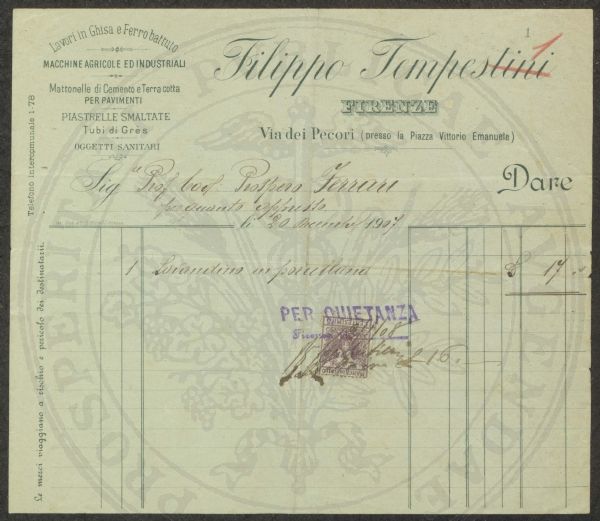 Lavori in Ghisa e Ferro battuto
MACCHINE AGRICOLE ED INDUSTRIALI
Mattonelle di Cemento e Terra cotta
PER PAVIMENTI
PIASTRELLE SMALTATE
Tubi di Grès
OGGETTI SANITARI
Telefono interoomunale 1-78
1
1
Filippo Tempestini
FIRENZE
Via dei Pecori (presso la Piazza Vittorio Emanuele)
Sig Prof Prospero Ferrari
Dare
per quanto appresso
li 20 1907
Le merci viaggiano a rischio e pericolo dei destinatari.
1 Lavandino in porcellana £ 17
PER QUIETANZA
Firenze
08
16.